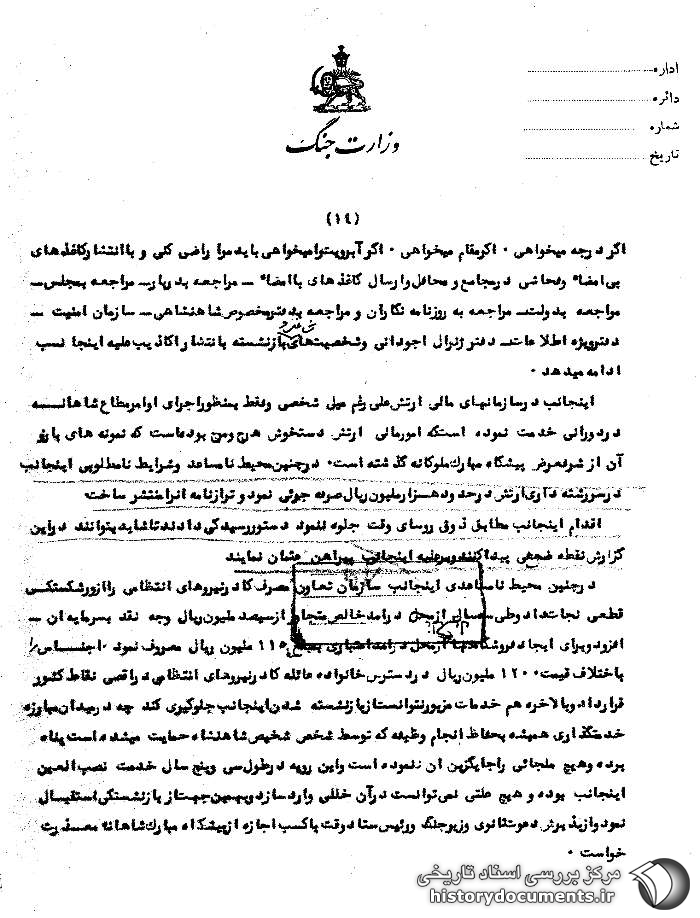 اداره
دائره
شماره
تاریخ
وزارت جنگ
(١٤)
اگر درجه میخواهی ۰ اگرمقام میخواهی ۰ اگر آبرویت را میخواهی باید مرا راضی کنی و با انتشار کاغذهای
بی امضاء وفحاشی درمجامع و محافل وارسال کاغذ های با امضاء ــ مراجعه بدربار ــ مراجعه بمجلس ــ
مراجعه بدولت ــ مراجعه به روزنامه نگاران و مراجعه بدفترمخصوص شاهنشاهی ــ سازمان امنیت ــ
دفترویژه اطلاعات ــ دفتر ژنرال اجودانی وشخصیت های بازنشسته بانتشار اکاذیب علیه اینجانب
ادامه میدهد ۰
اینجانب درسازمانهای مالی ارتش علی رغم میل شخصی وفقط بمنظوراجرای اوامرمطاع شاهانه
دردورانی خدمت نموده است که امورمالی ارتش دستخوش هرج ومرج بوده است که نمونه های بارز
آن از شرفعرض پیشگاه مبارک ملوکانه گذشته است ۰ درچنین محیط نامساعد وشرایط نامطلوبی اینجانب
درسررشته داری ارتش درحدود هزارملیون ریال صرفه جوئی نمود وترازنامه انرا منتشر ساخت
اقدام اینجانب مطابق ذوق روسای وقت جلوه ننمود دستوررسیدگی دادند تا شاید بتوانند دراین
گزارش نقطه ضعفی پیداکنند وبرعلیه اینجانب پیراهن عثمان نمایند
درچنین محیط نامساعدی اینجانب سازمان تعاون مصرف کادرنیروهای انتظامی را ازورشکستگی
قطعی نجات داد وطی سال ازمحل درآمد خالص متجاوز ازسیصد ملیون ریال وجه نقد بسرمایه ان ــ
افزود وبرای ایجاد فروشگاهها ازمحل درآمد اعتباری ۱۱۵ ملیون ریال مصروف نمود ۰ اجناس را
باختلاف قیمت ۱۲۰۰ ملیون ریال دردسترس خانواده عائله کادرنیروهای انتظامی دراقصی نقاط کشور
قرارداد وبالاخره هم خدمات مزبورنتوانست ازبازنشسته شدن اینجانب جلوگیری کند چه درمیدان مبارزه
خدمتگذاری همیشه بحفاظ انجام وظیفه که توسط شخص شخیص شاهنشاه حمایت میشده است پناه
برده وهیچ ملجائی راجایگزین ان ننموده است واین رویه درطول سی وپنج سال خدمت نصب العین
اینجانب بوده و هیچ علتی نمی توانست درآن خللی وارد سازد وبهمین جهت از بازنشستگی استقبال
نمود وازپذیرش دعوت ثانوی وزیرجنگ ورئیس ستاد وقت باکسب اجازه ازپیشگاه مبارک شاهانه معذرت
خواست ۰
مرکز بررسی اسناد تاریخی
historydocuments.ir